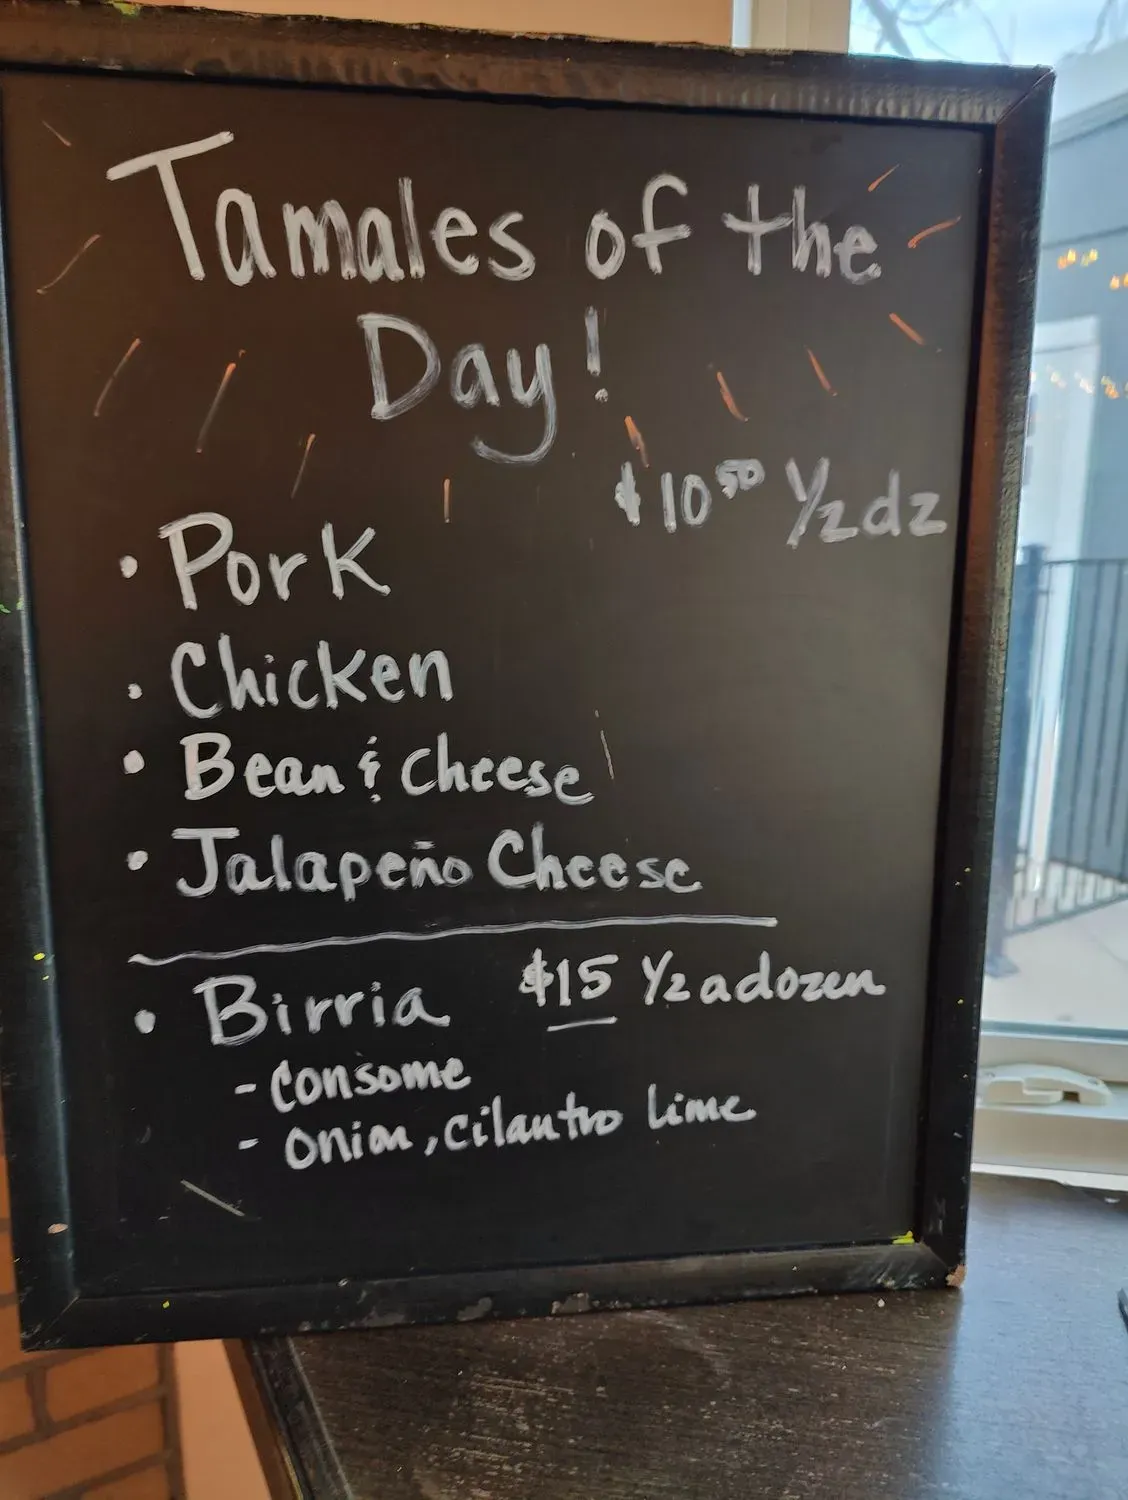 Tamales of the
Day!
$10.50 1/2 dz
• Pork
• Chicken
• Bean & Cheese
• Jalapeño Cheese
• Birria $15 1/2 a dozen
- Consome
- Onion, Cilantro lime